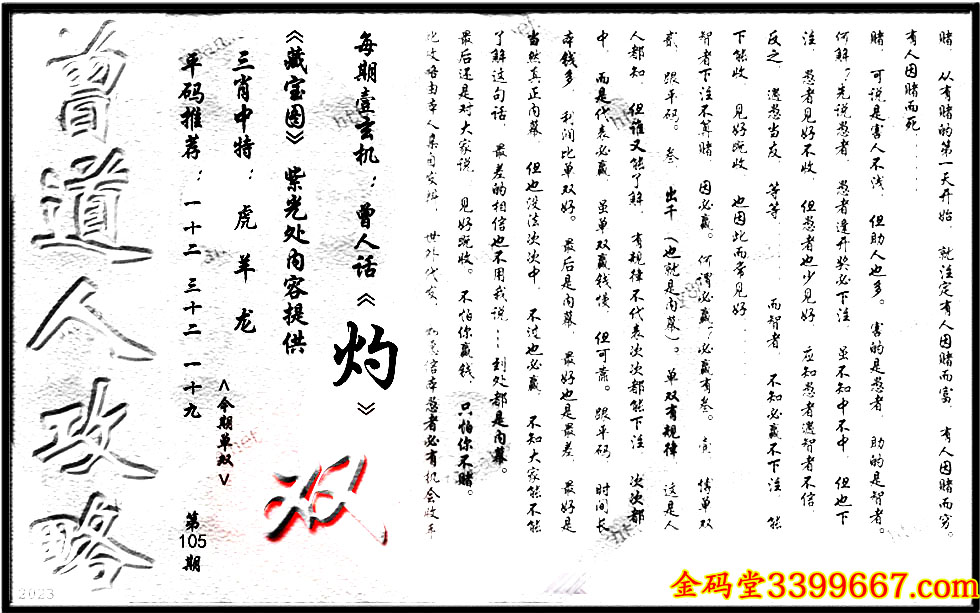 赌，从有赌的第一天开始，就注定有人因赌而富，有人因赌而穷。
有人因赌而死……
赌，可说是害人不浅，但助人也多。害的是愚者，助的是智者。
何解？先说愚者，愚者逢开奖必下注，虽不知中不中，但也下
注，愚者见好不收，但愚者也少见好，应知愚者遇智者不信，
反之，遇愚当友，等等……而智者，不知必赢不下注，能
下能收，见好既收，也因此而常见好……
智者下注不算赌，因必赢。何谓必赢？必赢有叁。壹，博单双
贰，跟平码。叁，出千（也就是内幕）。单双有规律，这是人
人都知，但谁又能了解，有规律不代表次次都能下注，次次都
中，而是代表必赢，虽单双赢钱慢，但可靠。跟平码，时间长
本钱多，利润比单双好。最后是内幕，最好也是最差，最好是
当然真正内幕，但也没法次次中，不过也必赢，不知大家能不能
了解这句话，最差的相信也不用我说……到处都是内幕。
最后还是对大家说，见好既收。不怕你赢钱，只怕你不赌。
此攻略由本人亲自发放，世外代友，愚者必有机会收年
每期壹玄机：曾人话《灼》
《藏宝图》紫光处内容提供
三肖中特：虎 羊 龙
平码推荐：一十二 三十二 一十九
<今期单双>
双
第
105
期
曾道人攻略
2023
金码堂3399667.com